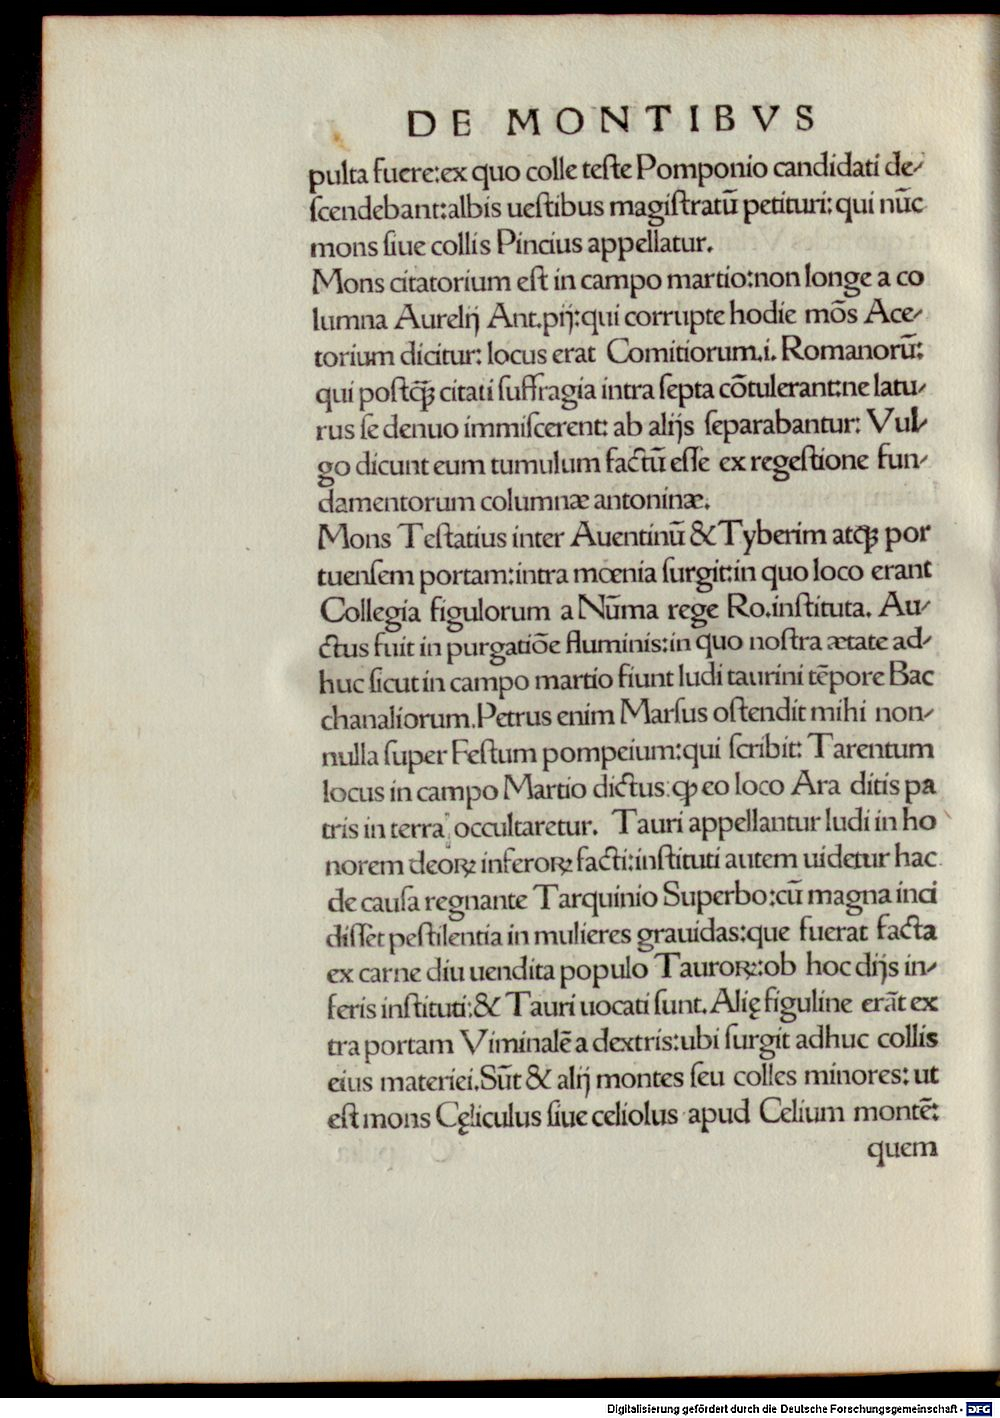 DE MONTIBVS
pulta fuere:ex quo colle teſte Pomponio candidati de⸗
ſcendebant:albis ueſtibus magiſtratū petituri: qui nūc
mons ſiue collis Pincius appellatur.
Mons citatorium eſt in campo martio:non longe a co
lumna Aurelij Ant.pij:qui corrupte hodie mōs Ace⸗
torium dicitur: locus erat Comitiorum.i. Romanorū:
qui poſtꝗ̄ citati ſuffragia intra ſepta cōtulerant:ne latu⸗
rus ſe denuo immiſcerent: ab alijs ſeparabantur: Vul⸗
go dicunt eum tumulum factū eſſe ex regeſtione fun⸗
damentorum columnæ antoninæ.
Mons Teſtatius inter Auentinū & Tyberim atqꝫ por
tuenſem portam:intra mœnia ſurgit:in quo loco erant
Collegia figulorum a Nūma rege Ro.inſtituta. Au⸗
ctus fuit in purgatiōe fluminis:in quo noſtra ætate ad⸗
huc ſicut in campo martio fiunt ludi taurini tēpore Bac
chanaliorum.Petrus enim Marſus oſtendit mihi non⸗
nulla ſuper Feſtum pompeium:qui ſcribit: Tarentum
locus in campo Martio dictus: ꝙ eo loco Ara ditis pa
tris in terra occultaretur. Tauri appellantur ludi in ho
norem deoꝝ inferoꝝ facti:inſtituti autem uidetur hac
de cauſa regnante Tarquinio Superbo:cū magna inci
diſſet peſtilentia in mulieres grauidas:que fuerat facta
ex carne diu uendita populo Tauroꝝ:ob hoc dijs in⸗
feris inſtituti:& Tauri uocati ſunt.Alię figuline erāt ex
tra portam Viminalē a dextris:ubi ſurgit adhuc collis
eius materiei.Sūt & alij montes ſeu colles minores: ut
eſt mons Cęliculus ſiue celiolus apud Celium montē:
quem
Digitalisierung gefördert durch die Deutsche Forschungsgemeinschaft - DFG